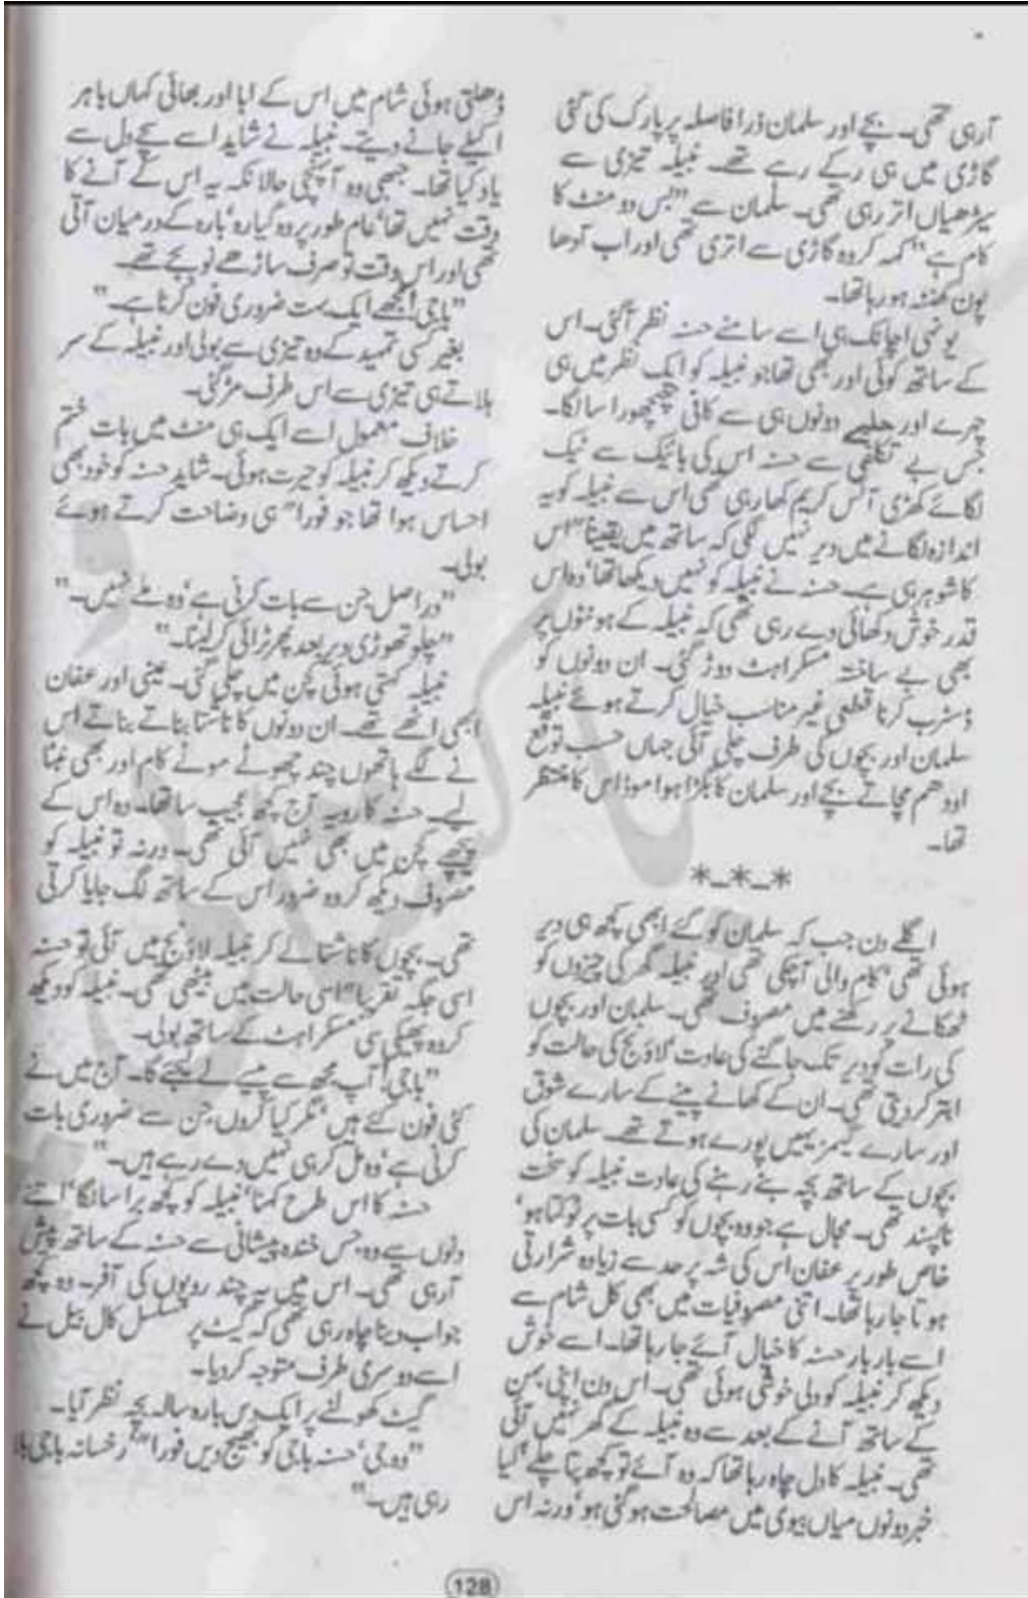 آرہی تھی۔ بچے اور سلمان ذرا فاصلہ پر پارک کی گئی
گاڑی میں ہی رکے رہے تھے۔ نبیلہ تیزی سے
سیڑھیاں اتر رہی تھی۔ سلمان سے "بس دو منٹ کا
کام ہے" کہہ کر وہ گاڑی سے اتری تھی اور اب آدھا
پون گھنٹہ ہو رہا تھا۔
یونہی اچانک ہی اسے سامنے حسنہ نظر آگئی۔ اس
کے ساتھ کوئی اور بھی تھا جو نبیلہ کو ایک نظر میں ہی
چہرے اور حلیے دونوں ہی سے کافی چھچھورا سا لگا۔
جس بے تکلفی سے حسنہ اس کی بائیک سے ٹیک
لگائے کھڑی آئس کریم کھا رہی تھی اس سے نبیلہ کو یہ
اندازہ لگانے میں دیر نہیں لگی کہ ساتھ میں یقیناً" اس
کا شوہر ہی ہے۔ حسنہ نے نبیلہ کو نہیں دیکھا تھا' وہ اس
قدر خوش دکھائی دے رہی تھی کہ نبیلہ کے ہونٹوں پر
بھی بے ساختہ مسکراہٹ دوڑ گئی۔ ان دونوں کو
ڈسٹرب کرنا قطعی غیر مناسب خیال کرتے ہوئے نبیلہ
سلمان اور بچوں کی طرف چلی آئی جہاں حسب توقع
اودھم مچاتے بچے اور سلمان کا بگڑا ہوا موڈ اس کا منتظر
تھا۔
*_*_*
اگلے دن جب کہ سلمان کو گئے ابھی کچھ ہی دیر
ہوئی تھی' کام والی آچکی تھی اور نبیلہ گھر کی چیزوں کو
ٹھکانے پر رکھنے میں مصروف تھی۔ سلمان اور بچوں
کی رات کو دیر تک جاگنے کی عادت' لاؤنج کی حالت کو
ابتر کر دیتی تھی۔ ان کے کھانے پینے کے سارے شوق
اور سارے گیمز یہیں پورے ہوتے تھے۔ سلمان کی
بچوں کے ساتھ بچہ بنے رہنے کی عادت نبیلہ کو سخت
ناپسند تھی۔ مجال ہے جو وہ بچوں کو کسی بات پر ٹوکتا ہو'
خاص طور پر عفان اس کی شہ پر حد سے زیادہ شرارتی
ہوتا جا رہا تھا۔ اتنی مصروفیات میں بھی کل شام سے
اسے بار بار حسنہ کا خیال آئے جا رہا تھا۔ اسے خوش
دیکھ کر نبیلہ کو دلی خوشی ہوئی تھی۔ اس دن اپنی بہن
کے ساتھ آنے کے بعد سے وہ نبیلہ کے گھر نہیں آئی
تھی۔ نبیلہ کا دل چاہ رہا تھا کہ وہ آئے تو کچھ پتا چلے' کیا
خبر دونوں میاں بیوی میں مصالحت ہو گئی ہو' ورنہ اس
ڈھلتی ہوئی شام میں اس کے ابا اور بھائی کہاں باہر
اکیلے جانے دیتے۔ نبیلہ نے شاید اسے سچے دل سے
یاد کیا تھا۔ جبھی وہ آپہنچی حالانکہ یہ اس کے آنے کا
وقت نہیں تھا' عام طور پر وہ گیارہ' بارہ کے درمیان آتی
تھی اور اس وقت تو صرف ساڑھے نو بجے تھے۔
"باجی! مجھے ایک بہت ضروری فون کرنا ہے۔"
بغیر کسی تمہید کے وہ تیزی سے بولی اور نبیلہ کے سر
ہلاتے ہی تیزی سے اس طرف مڑ گئی۔
خلاف معمول اسے ایک ہی منٹ میں بات ختم
کرتے دیکھ کر نبیلہ کو حیرت ہوئی۔ شاید حسنہ کو خود بھی
احساس ہوا تھا جو فورا" ہی وضاحت کرتے ہوئے
بولی۔
"دراصل جن سے بات کرنی ہے' وہ ملے نہیں۔"
"چلو تھوڑی دیر بعد پھر ٹرائی کر لینا۔"
نبیلہ کہتی ہوئی کچن میں چلی گئی۔ عینی اور عفان
ابھی اٹھے تھے۔ ان دونوں کا ناشتا بناتے بناتے اس
نے لگے ہاتھوں چند چھوٹے موٹے کام اور بھی نمٹا
لیے۔ حسنہ کا رویہ آج کچھ عجیب سا تھا۔ وہ اس کے
پیچھے کچن میں بھی نہیں آئی تھی۔ ورنہ تو نبیلہ کو
مصروف دیکھ کر وہ ضرور اس کے ساتھ لگ جایا کرتی
تھی۔ بچوں کا ناشتا لے کر نبیلہ لاؤنج میں آئی تو حسنہ
اسی جگہ تقریبا" اسی حالت میں بیٹھی تھی۔ نبیلہ کو دیکھ
کر وہ پھیکی سی مسکراہٹ کے ساتھ بولی۔
"باجی! آپ مجھ سے پیسے لے لیجئے گا۔ آج میں نے
کئی فون کئے ہیں' مگر کیا کروں جن سے ضروری بات
کرنی ہے' وہ مل کر ہی نہیں دے رہے ہیں۔"
حسنہ کا اس طرح کہنا' نبیلہ کو کچھ برا سا لگا' اتنے
دنوں سے وہ جس خندہ پیشانی سے حسنہ کے ساتھ پیش
آرہی تھی۔ اس میں یہ چند روپوں کی آفر۔ وہ کچھ
جواب دینا چاہ رہی تھی کہ گیٹ پر مسلسل کال بیل نے
اسے دوسری طرف متوجہ کر دیا۔
گیٹ کھولنے پر ایک دس بارہ سالہ بچہ نظر آیا۔
"وہ جی' حسنہ باجی کو بھیج دیں فورا"' رخسانہ باجی بلا
رہی ہیں۔"
128